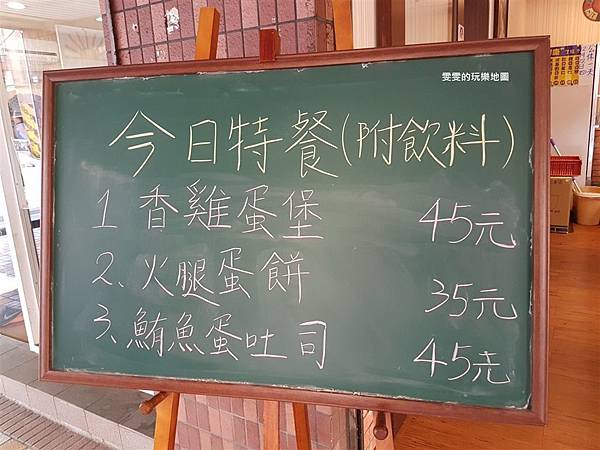 雯雯的玩樂地圖
今日特餐(附飲料)
1 香雞蛋堡 45元
2、火腿蛋餅 35元
3、鮪魚蛋吐司 45元